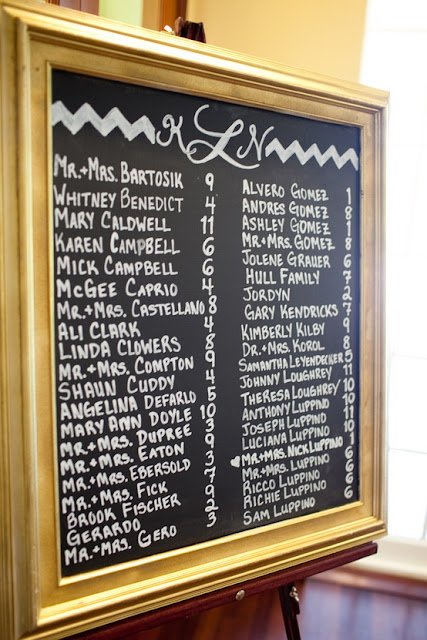 KLN
Mr.+Mrs. Bartosik 9
Whitney Benedict 4
Mary Caldwell 11
Karen Campbell 6
Mick Campbell 6
McGee Caprio 4
Mr.+Mrs. Castellano 8
Ali Clark 4
Linda Clowers 8
Mr.+Mrs. Compton 9
Shaun Cuddy 4
Angelina Defarlo 5
Mary Ann Doyle 10
Mr.+Mrs. Dupree 3
Mr.+Mrs. Eaton 9
Mr.+Mrs. Ebersold 3
Mr.+Mrs. Fick 7
Brook Fischer 9
Gerardo 2
Mr.+Mrs. Gero 3
Alvero Gomez 1
Andres Gomez 8
Ashley Gomez 1
Mr.+Mrs. Gomez 8
Jolene Grauer 6
Hull Family 7
Jordyn 2
Gary Kendricks 7
Kimberly Kilby 9
Dr.+Mrs. Korol 8
Samantha Leyendecker 5
Johnny Loughrey 11
Theresa Loughrey 10
Anthony Luppino 10
Joseph Luppino 11
Luciana Luppino 10
♥Mr.+Mrs. Nick Luppino 1
Mr.+Mrs. Luppino 6
Ricco Luppino 6
Richie Luppino 6
Sam Luppino 6